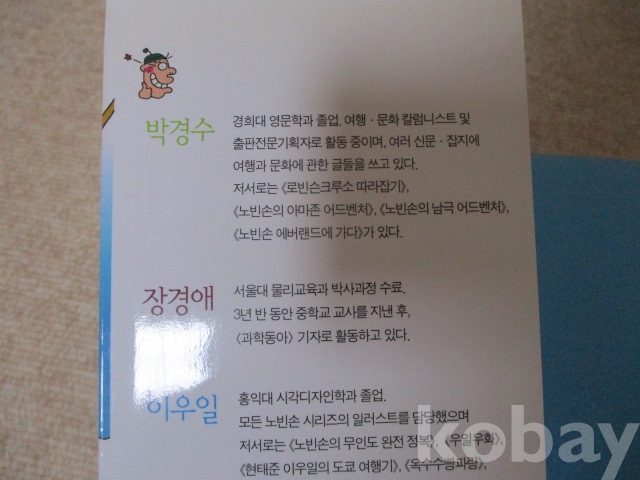 박경수
경희대 영문학과 졸업. 여행 · 문화 칼럼니스트 및
출판전문기획자로 활동 중이며, 여러 신문 · 잡지에
여행과 문화에 관한 글들을 쓰고 있다.
저서로는 《로빈슨크루소 따라잡기》,
《노빈손의 아마존 어드벤처》, 《노빈손의 남극 어드벤처》,
《노빈손 에버랜드에 가다》가 있다.
장경애
서울대 물리교육과 박사과정 수료.
3년 반 동안 중학교 교사를 지낸 후,
〈과학동아〉 기자로 활동하고 있다.
이우일
홍익대 시각디자인학과 졸업.
모든 노빈손 시리즈의 일러스트를 담당했으며
저서로는 《노빈손의 무인도 완전 정복》, 《우일우화》,
《현태준 이우일의 도쿄 여행기》, 《옥수수빵파랑》,
kobay